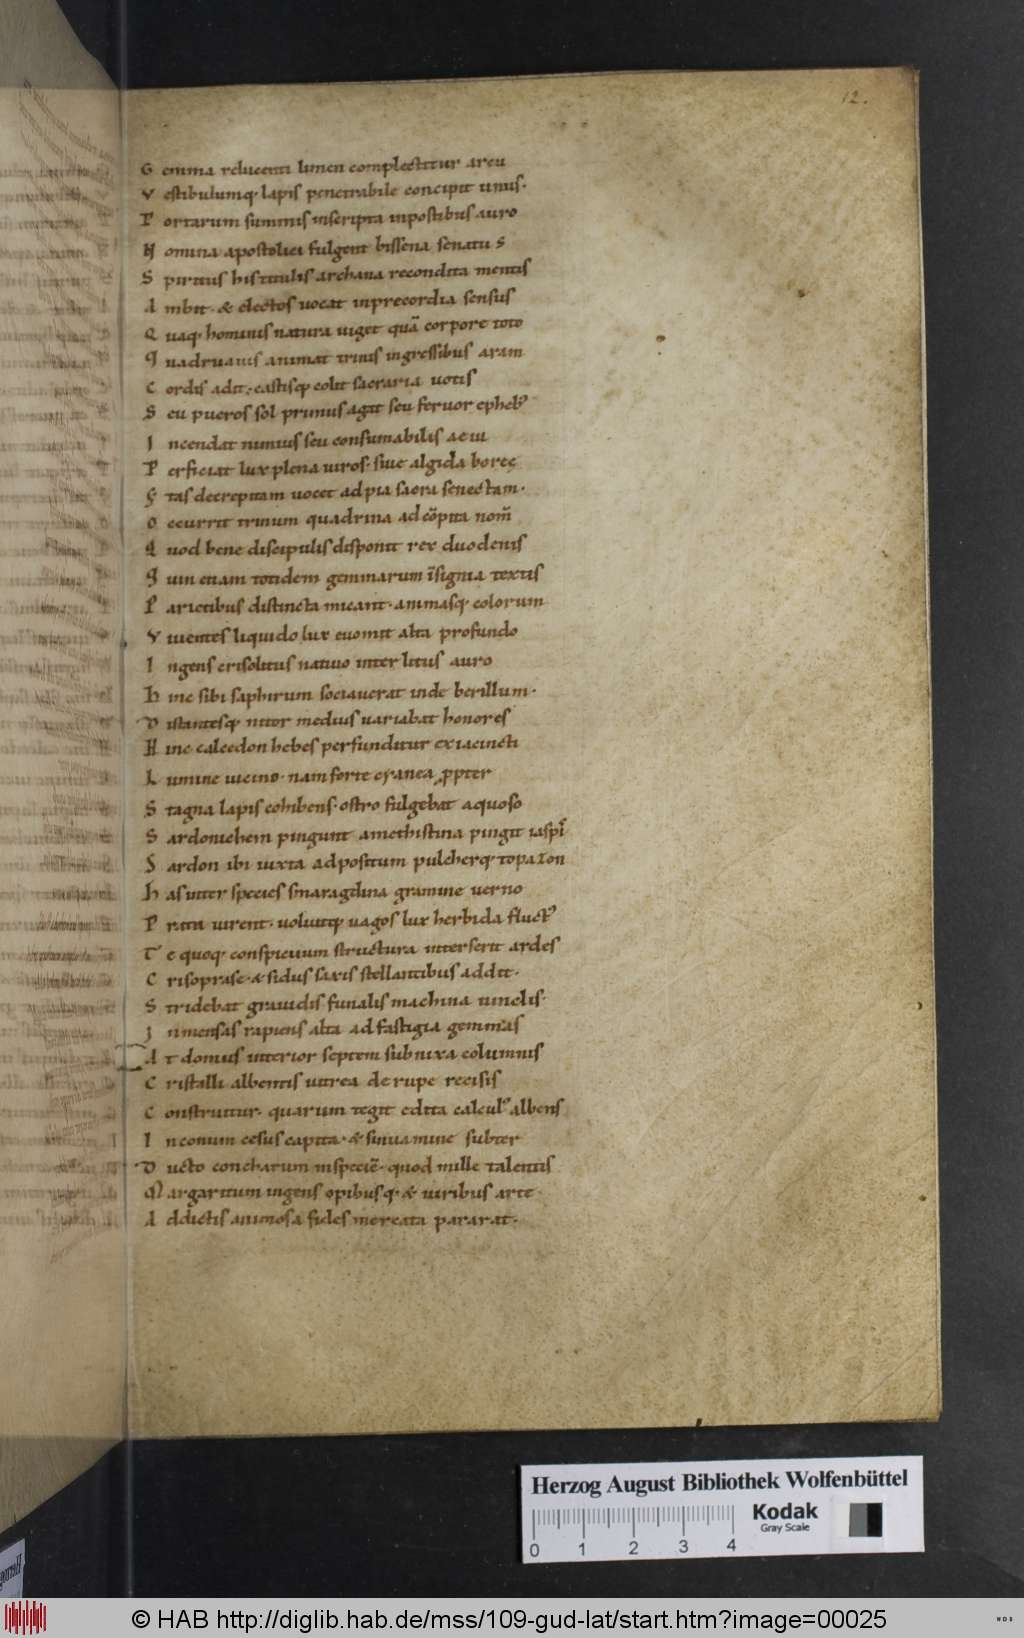 12.
G emma relucenti limen complectitur arcu
V estibulumq; lapis penetrabile concipit unus.
P ortarum summis inscripta inpostibus auro
N omina apostolici fulgent bissena senatus
S piritus his titulis archana recondita mentis
A mbit. & electos uocat inprecordia sensus
Q uaq; hominis natura uiget quā corpore toto
Q uadruauis animat trinis ingressibus aram
C ordis adit. castisq; colit sacraria uotis
S eu pueros sol primus agit seu feruor epheb⁹
I ncendat nimius seu consumabilis aeui
P erficiat lux plena uiros. siue algida boreę
Ę tas decrepitam uocet adpia sacra senectam.
O ccurrit trinum quadrina ad cōpita nom̄
Q uod bene discipulis disponit rex duodenis
Q uin etiam totidem gemmarum īsignia textis
P arietibus distincta micant. animasq; colorum
V iuentes liquido lux euomit alta profundo
I ngens crisolitus natiuo interlitus auro
H inc sibi saphirum sociauerat inde berillum.
D istantesq; nitor medius uariabat honores
H inc calcedon hebes perfunditur exiacincti
L umine uicino. nam forte cyanea ꝓpter
S tagna lapis cohibens. ostro fulgebat aquoso
S ardonichem pingunt amethistina pingit iaspī
S ardon ibi iuxta adpositum pulcherq; topazon
H as inter species smaragdina gramine uerno
P rata uirent. uoluitq; uagos lux herbida fluct⁹
T e quoq; conspicuum structura interserit ardes
C risoprase. & sidus saxis stellantibus addit.
S tridebat grauidis funalis machina uinclis.
I nmensas rapiens alta ad fastigia gemmas
A t domus interior septem subnixa columnis
C ristalli albentis uitrea de rupe recisis
C onstruitur. quarum tegit edita calcul⁹ albens
I nconum cesus capita. & sinuamine subter
D ucto concharum inspeciē. quod mille talentis
M argaritum ingens opibusq; & uiribus arte
A ddictis animosa fides mercata pararat.
Herzog August Bibliothek Wolfenbüttel
Kodak
Gray Scale
0 1 2 3 4
© HAB http://diglib.hab.de/mss/109-gud-lat/start.htm?image=00025